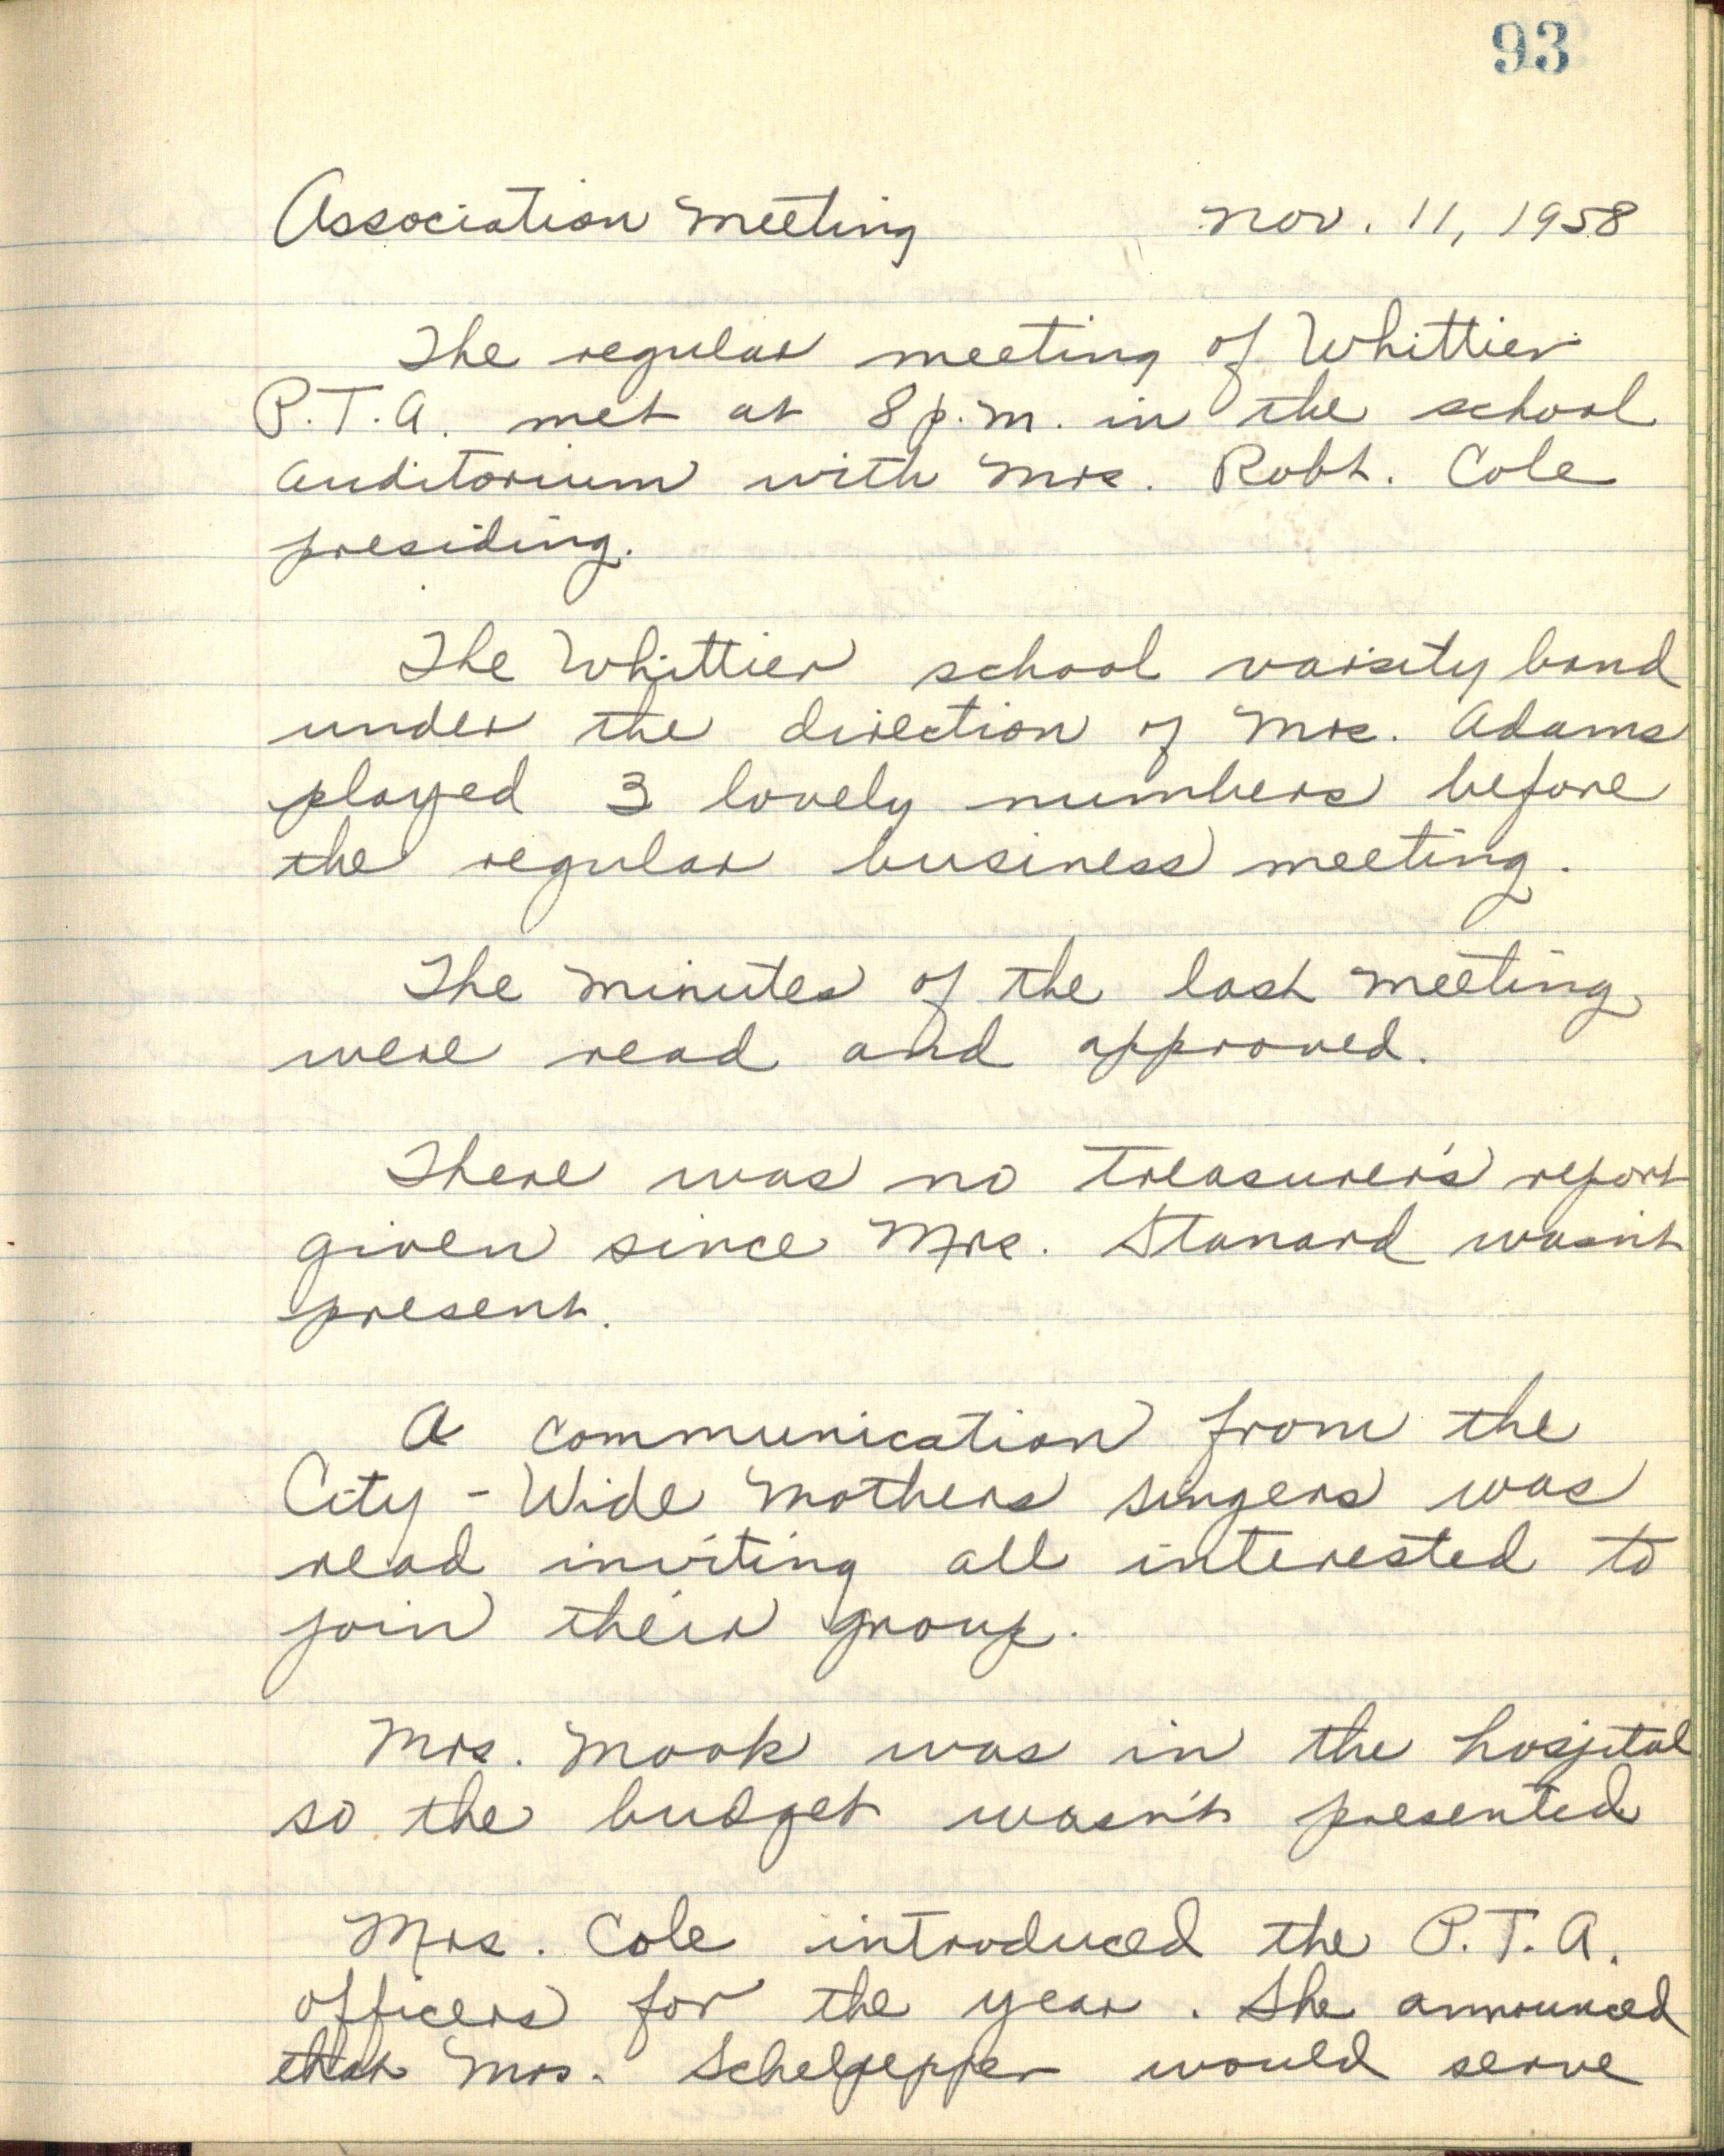 93
Association Meeting Nov. 11, 1958
The regular meeting of Whittier
P.T.A. met at 8 p.m. in the school
auditorium with Mrs. Robt. Cole
presiding.
The Whittier school varsity band
under the direction of Mrs. Adams
played 3 lovely numbers before
the regular business meeting.
The minutes of the last meeting
were read and approved.
There was no treasurer's report
given since Mrs. Stanard wasn't
present.
A communication from the
City-Wide Mothers singers was
read inviting all interested to
join their group.
Mrs. Mook was in the hospital
so the budget wasn't presented
Mrs. Cole introduced the P.T.A.
officers for the year. She announced
that Mrs. Schelpepper would serve